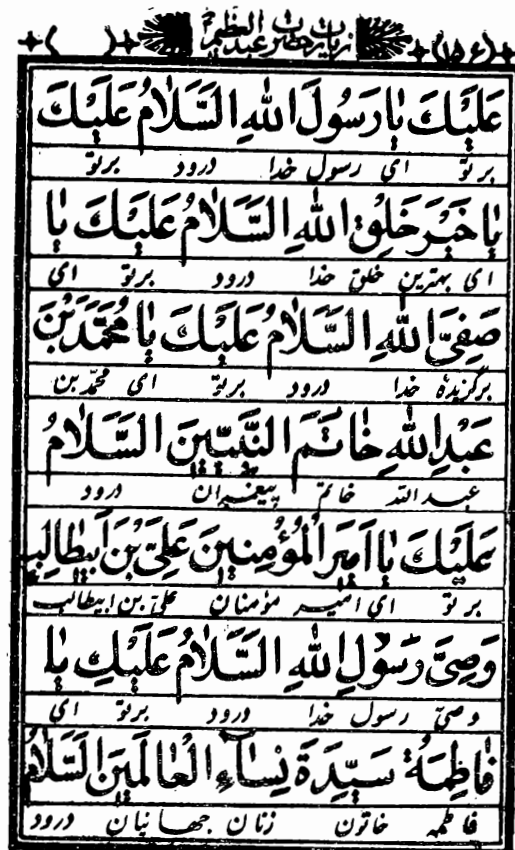 (۱۵۶) زیارت حضرت عبدالعظیم ( )
عَلَیْكَ یٰا رَسُولَ اللهِ السَّلٰامُ عَلَیْكَ
برتو ای رسول خدا درود برتو
یٰا خَیْرَ خَلْقِ اللهِ السَّلٰامُ عَلَیْكَ یٰا
ای بهترین خلق خدا درود برتو ای
صَفِیَّ اللهِ السَّلٰامُ عَلَیْكَ یٰا مُحَمَّدَ بْنَ
برگزیدهٔ خدا درود برتو ای محمّد بن
عَبْدِ اللهِ خٰاتَمَ النَّبِیّینَ السَّلٰامُ
عبدالله خاتم پیغمبران درود
عَلَیْكَ یٰا اَمیرَ الْمُؤْمِنینَ عَلِیَّ بْنَ اَبیطٰالِبٍ
برتو ای امیر مؤمنان علیّ بن ابیطالب
وَصِیَّ رَسُولِ اللهِ السَّلٰامُ عَلَیْكِ یٰا
وصیّ رسول خدا درود برتو ای
فٰاطِمَةُ سَیِّدَةَ نِسٰاءِ الْعٰالَمینَ السَّلٰامُ
فاطمه خاتون زنان جهانیان درود